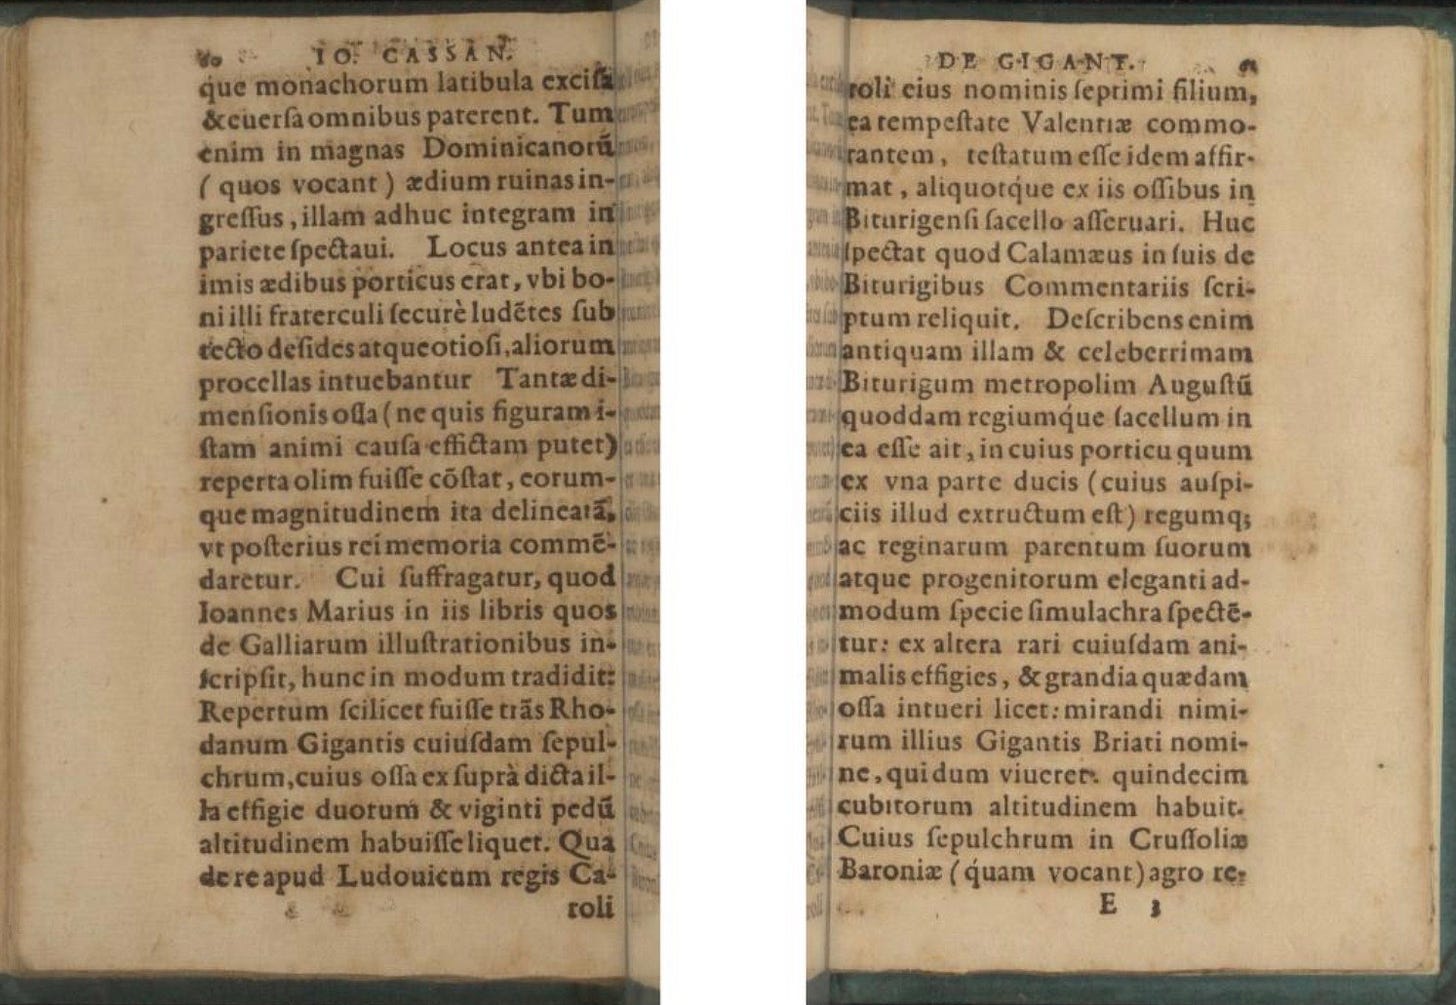 IO. CASSAN.
que monachorum latibula excisa
& euersa omnibus paterent. Tum
enim in magnas Dominicanorū
( quos vocant ) ædium ruinas in-
gressus, illam adhuc integram in
pariete spectaui. Locus antea in
imis ædibus porticus erat, vbi bo-
ni illi fraterculi securè ludētes sub
tecto desides atque otiosi, aliorum
procellas intuebantur Tantæ di-
mensionis ossa ( ne quis figuram i-
stam animi causa effictam putet)
reperta olim fuisse cōstat, eorum-
que magnitudinem ita delineatā,
vt posterius rei memoria commē-
daretur. Cui suffragatur, quod
Ioannes Marius in iis libris quos
de Galliarum illustrationibus in-
scripsit, hunc in modum tradidit:
Repertum scilicet fuisse trās Rho-
danum Gigantis cuiusdam sepul-
chrum, cuius ossa ex suprà dicta il-
la effigie duorum & viginti pedū
altitudinem habuisse liquet. Qua
de re apud Ludouicum regis Ca-
roli
DE GIGANT.
roli eius nominis septimi filium,
ea tempestate Valentiæ commo-
rantem, testatum esse idem affir-
mat, aliquotq́ue ex iis ossibus in
Biturigensi sacello asseruari. Huc
spectat quod Calamæus in suis de
Biturigibus Commentariis scri-
ptum reliquit. Describens enim
antiquam illam & celeberrimam
Biturigum metropolim Augustū
quoddam regiumq́ue sacellum in
ea esse ait, in cuius porticu quum
ex vna parte ducis (cuius auspi-
ciis illud extructum est) regumq;
ac reginarum parentum suorum
atque progenitorum eleganti ad-
modum specie simulachra spectē-
tur: ex altera rari cuiusdam ani-
malis effigies, & grandia quædam
ossa intueri licet: mirandi nimi-
rum illius Gigantis Briati nomi-
ne, qui dum viueret quindecim
cubitorum altitudinem habuit.
Cuius sepulchrum in Crussoliæ
Baroniæ (quam vocant) agro re-
E 3